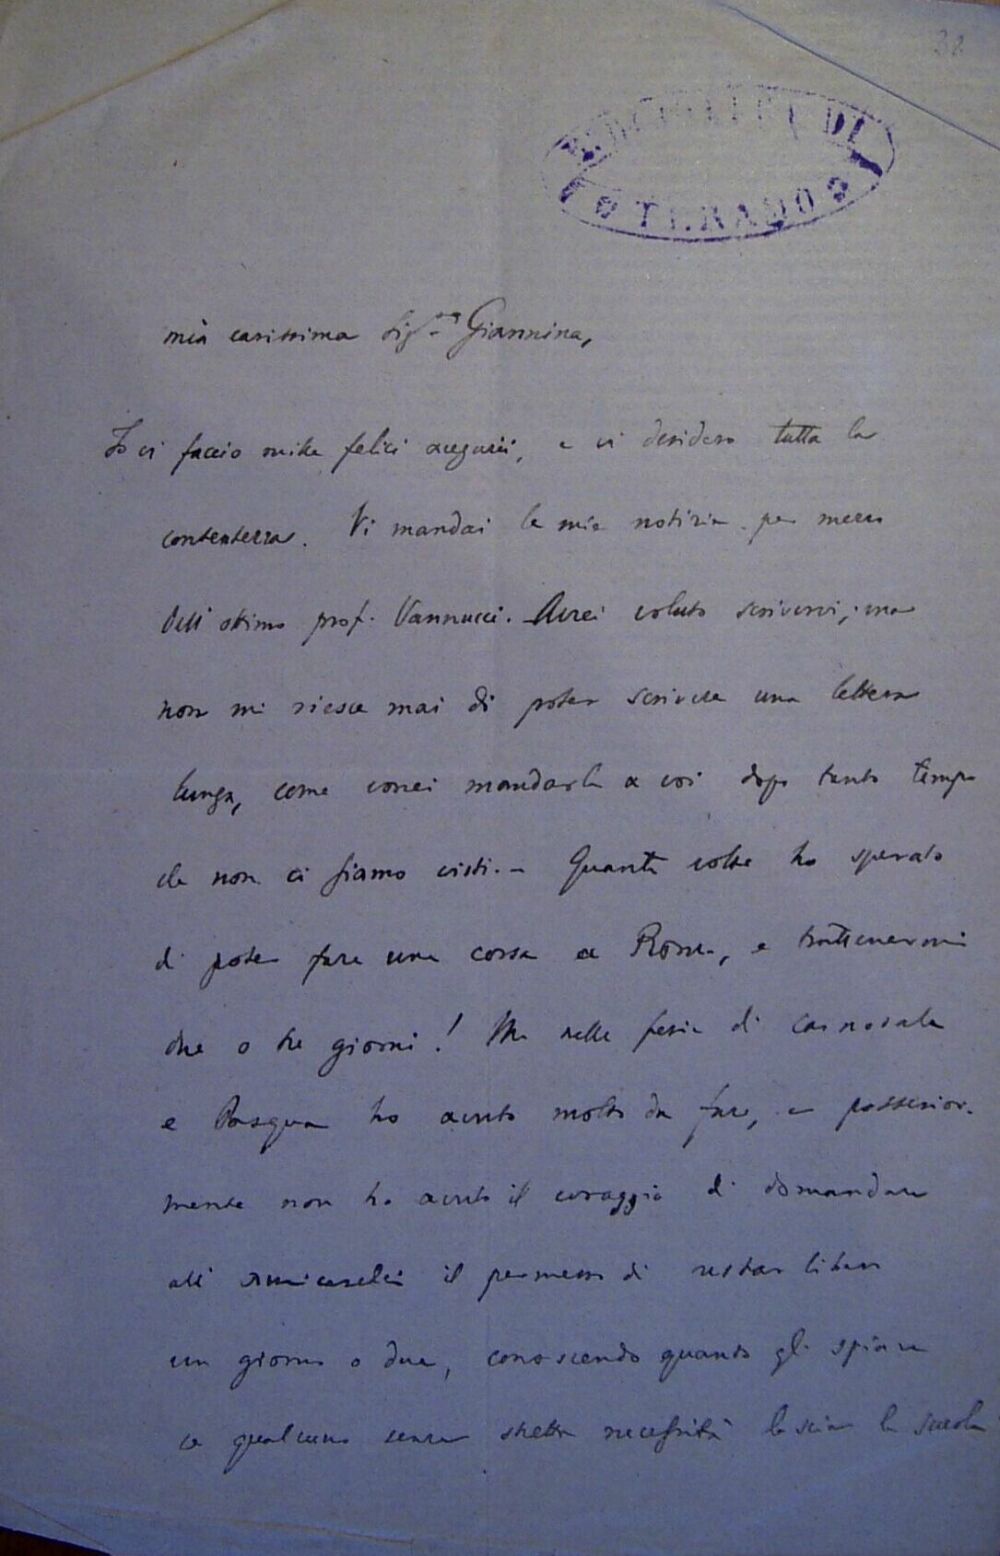 32
DI
TERAMO
mia carissima Sig.ra Giannina,
Io vi faccio mille felici augurii, e vi desidero tutta la
contentezza. Vi mandai le mie notizie per mezzo
dell'ottimo prof. Vannucci. Avrei voluto scrivervi; ma
non mi riesce mai di poter scrivere una lettera
lunga, come vorrei mandarla a voi dopo tanto tempo
che non ci siamo visti. – Quante volte ho sperato
di poter fare una corsa a Roma, e trattenermi
due o tre giorni! Ma nelle ferie di carnovale
e Pasqua ho avuto molto da fare, e posterior-
mente non ho avuto il coraggio di domandare
all' il permesso di restar libero
un giorno o due, conoscendo quanto gli spiace
se qualcuno senza stretta necessità lascia la scuola